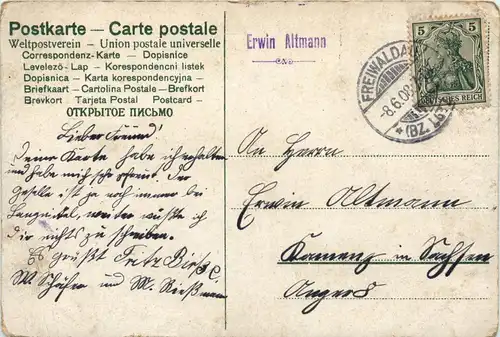 Postkarte — Carte postale
Weltpostverein — Union postale universelle
Correspondenz-Karte — Dopisnice
Levelező-Lap — Korespondencni listek
Dopisnica — Karta korespondencyjna —
Briefkaart — Cartolina Postale — Brefkort
Brevkort — Tarjeta Postal — Postcard —
ОТКРЫТОЕ ПИСЬМО
Lieber Freund!
Deine Karte habe ich erhalten
und habe mich sehr gefreut. Der
Geselle ist ja noch immer bei
weiter wüßte ich
dir nichts zu schreiben.
Es grüßt Fritz
M. Schäfer und M.
Erwin Altmann
5 5
DEUTSCHES REICH
FREIWALDAU
8.6.08
(BZ. LG
An Herrn
Erwin Altmann
Kamenz in Sachsen
Anger 8